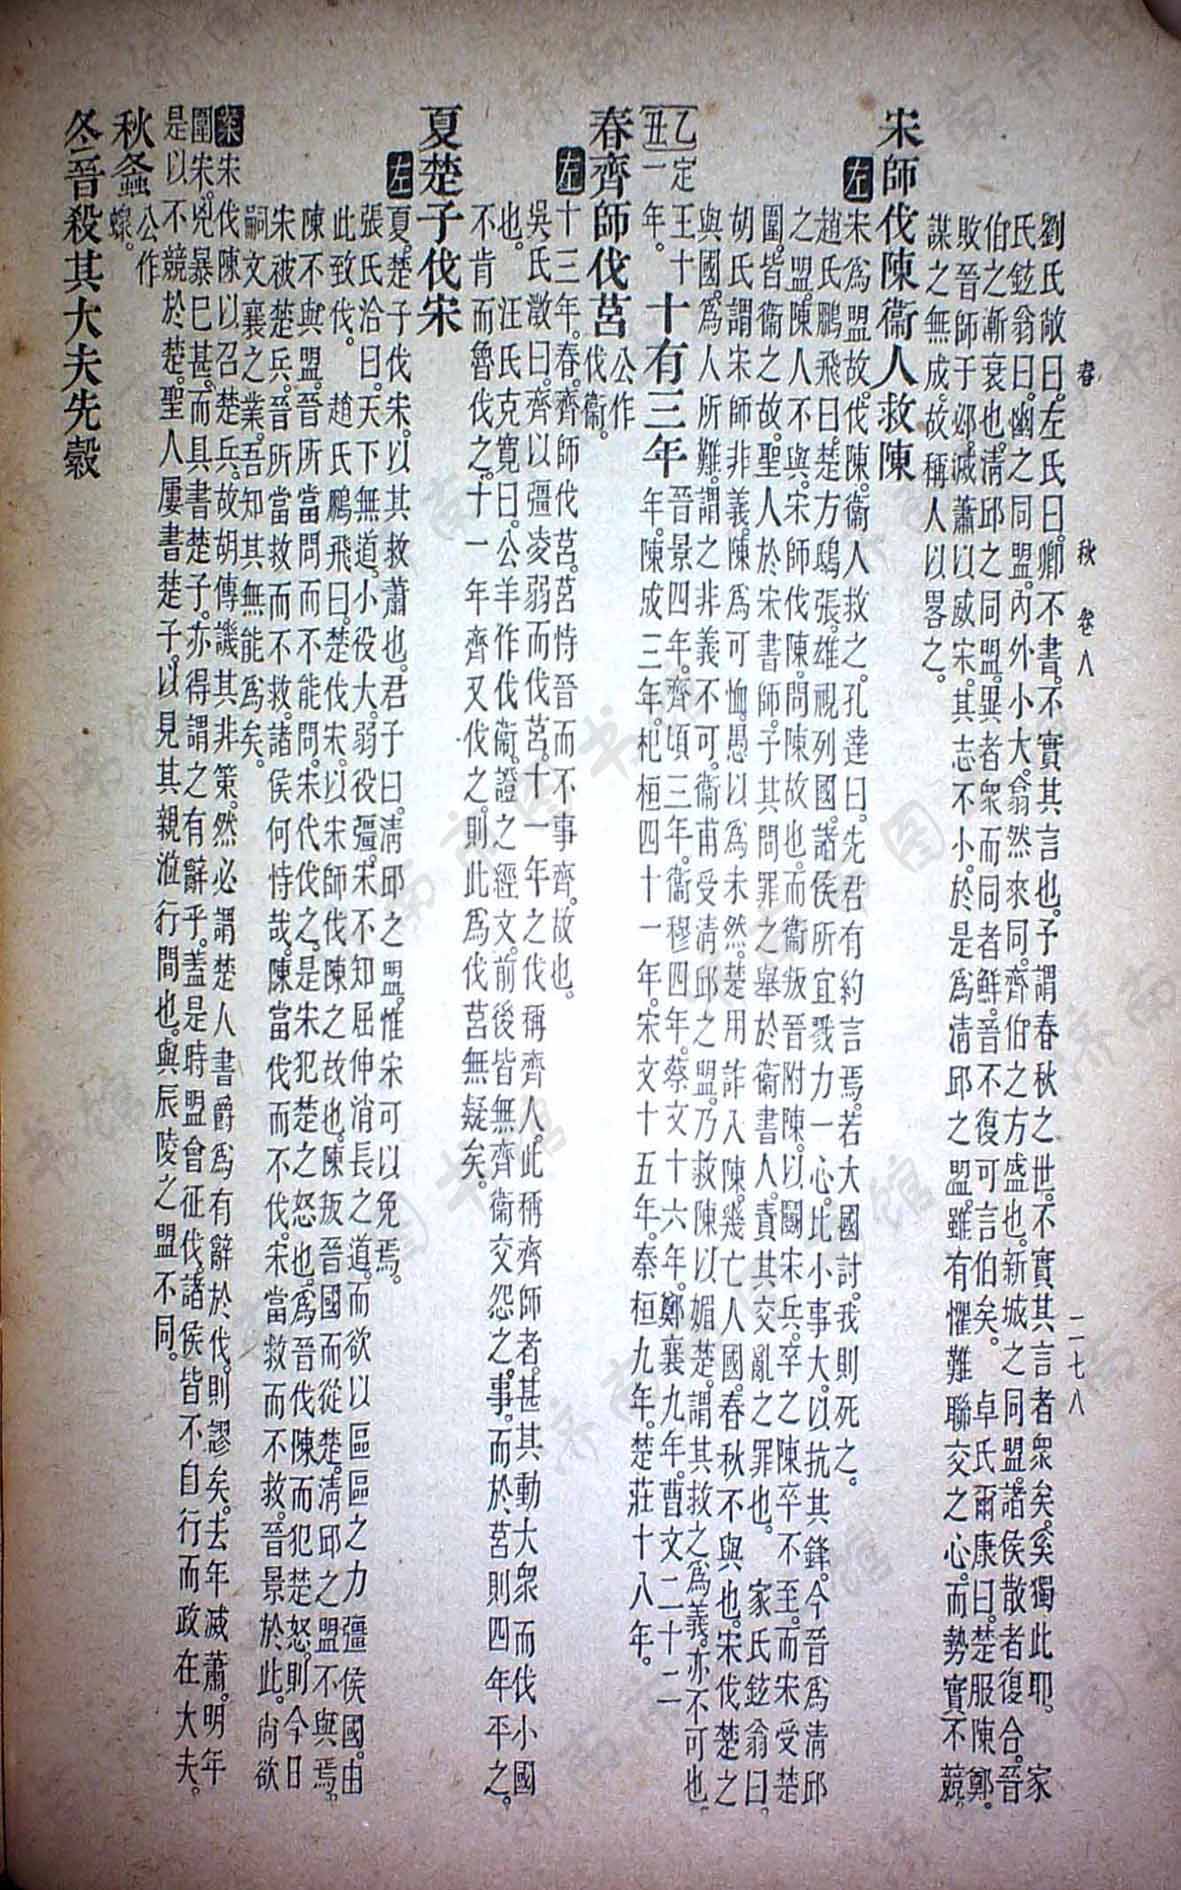 春　秋　卷八　二七八
劉氏敞曰。左氏曰。卿不書。不實其言也。予謂春秋之世。不實其言者衆矣。奚獨此耶。　家
氏鉉翁曰。幽之同盟。內外小大。翕然來同。齊伯之方盛也。新城之同盟。諸侯散者復合。晉
伯之漸衰也。淸邱之同盟。異者衆而同者鮮。晉不復可言伯矣。　卓氏爾康曰。楚服陳鄭。
敗晉師于邲。滅蕭以威宋。其志不小。於是爲淸邱之盟。雖有懼難聯交之心。而勢實不競。
謀之無成。故稱人以畧之。
宋師伐陳衞人救陳
左宋爲盟故。伐陳。衞人救之。孔達曰。先君有約言焉。若大國討。我則死之。
趙氏鵬飛曰。楚方鴟張。雄視列國。諸侯所宜戮力一心。比小事大。以抗其鋒。今晉爲淸邱
之盟。陳人不與。宋師伐陳。問陳故也。而衞叛晉附陳。以鬭宋兵。卒之陳卒不至。而宋受楚
圍。皆衞之故。聖人於宋書師。予其問罪之舉。於衞書人。責其交亂之罪也。　家氏鉉翁曰。
胡氏謂宋師非義。陳爲可恤。愚以爲未然。楚用詐入陳。幾亡人國。春秋不與也。宋伐楚之
與國。爲人所難。謂之非義不可。衞甫受淸邱之盟。乃救陳以媚楚。謂其救之爲義。亦不可也。
乙丑定王十一年。十有三年晉景四年。齊頃三年。衞穆四年。蔡文十六年。鄭襄九年。曹文二十二
年。陳成三年。杞桓四十一年。宋文十五年。秦桓九年。楚莊十八年。
春齊師伐莒公作伐衞。
左十三年。春。齊師伐莒。莒恃晉而不事齊。故也。
吳氏澂曰。齊以彊凌弱而伐莒。十一年之伐稱齊人。此稱齊師者。甚其動大衆而伐小國
也。　汪氏克寬曰。公羊作伐衞。證之經文。前後皆無齊衞交怨之事。而於莒則四年平之。
不肯而魯伐之。十一年齊又伐之。則此爲伐莒無疑矣。
夏楚子伐宋
左夏。楚子伐宋。以其救蕭也。君子曰。淸邱之盟。惟宋可以免焉。
張氏洽曰。天下無道。小役大。弱役彊。宋不知屈伸消長之道。而欲以區區之力彊侯國。由
此致伐。　趙氏鵬飛曰。楚伐宋。以宋師伐陳之故也。陳叛晉國而從楚。淸邱之盟不與焉。
陳不與盟。晉所當問而不能問。宋代伐之。是宋犯楚之怒也。爲晉伐陳而犯楚怒。則今日
宋被楚兵。晉所當救而不救。諸侯何恃哉。陳當伐而不伐。宋當救而不救。晉景於此。尚欲
嗣文襄之業。吾知其無能爲矣。
案宋伐陳以召楚兵。故胡傳譏其非策。然必謂楚人書爵爲有辭於伐。則謬矣。去年滅蕭。明年
圍宋。兇暴已甚。而具書楚子。亦得謂之有辭乎。蓋是時盟會征伐。諸侯皆不自行而政在大夫。
是以不競於楚。聖人屢書楚子。以見其親涖行間也。與辰陵之盟不同。
秋螽公作蝝。
冬晉殺其大夫先縠